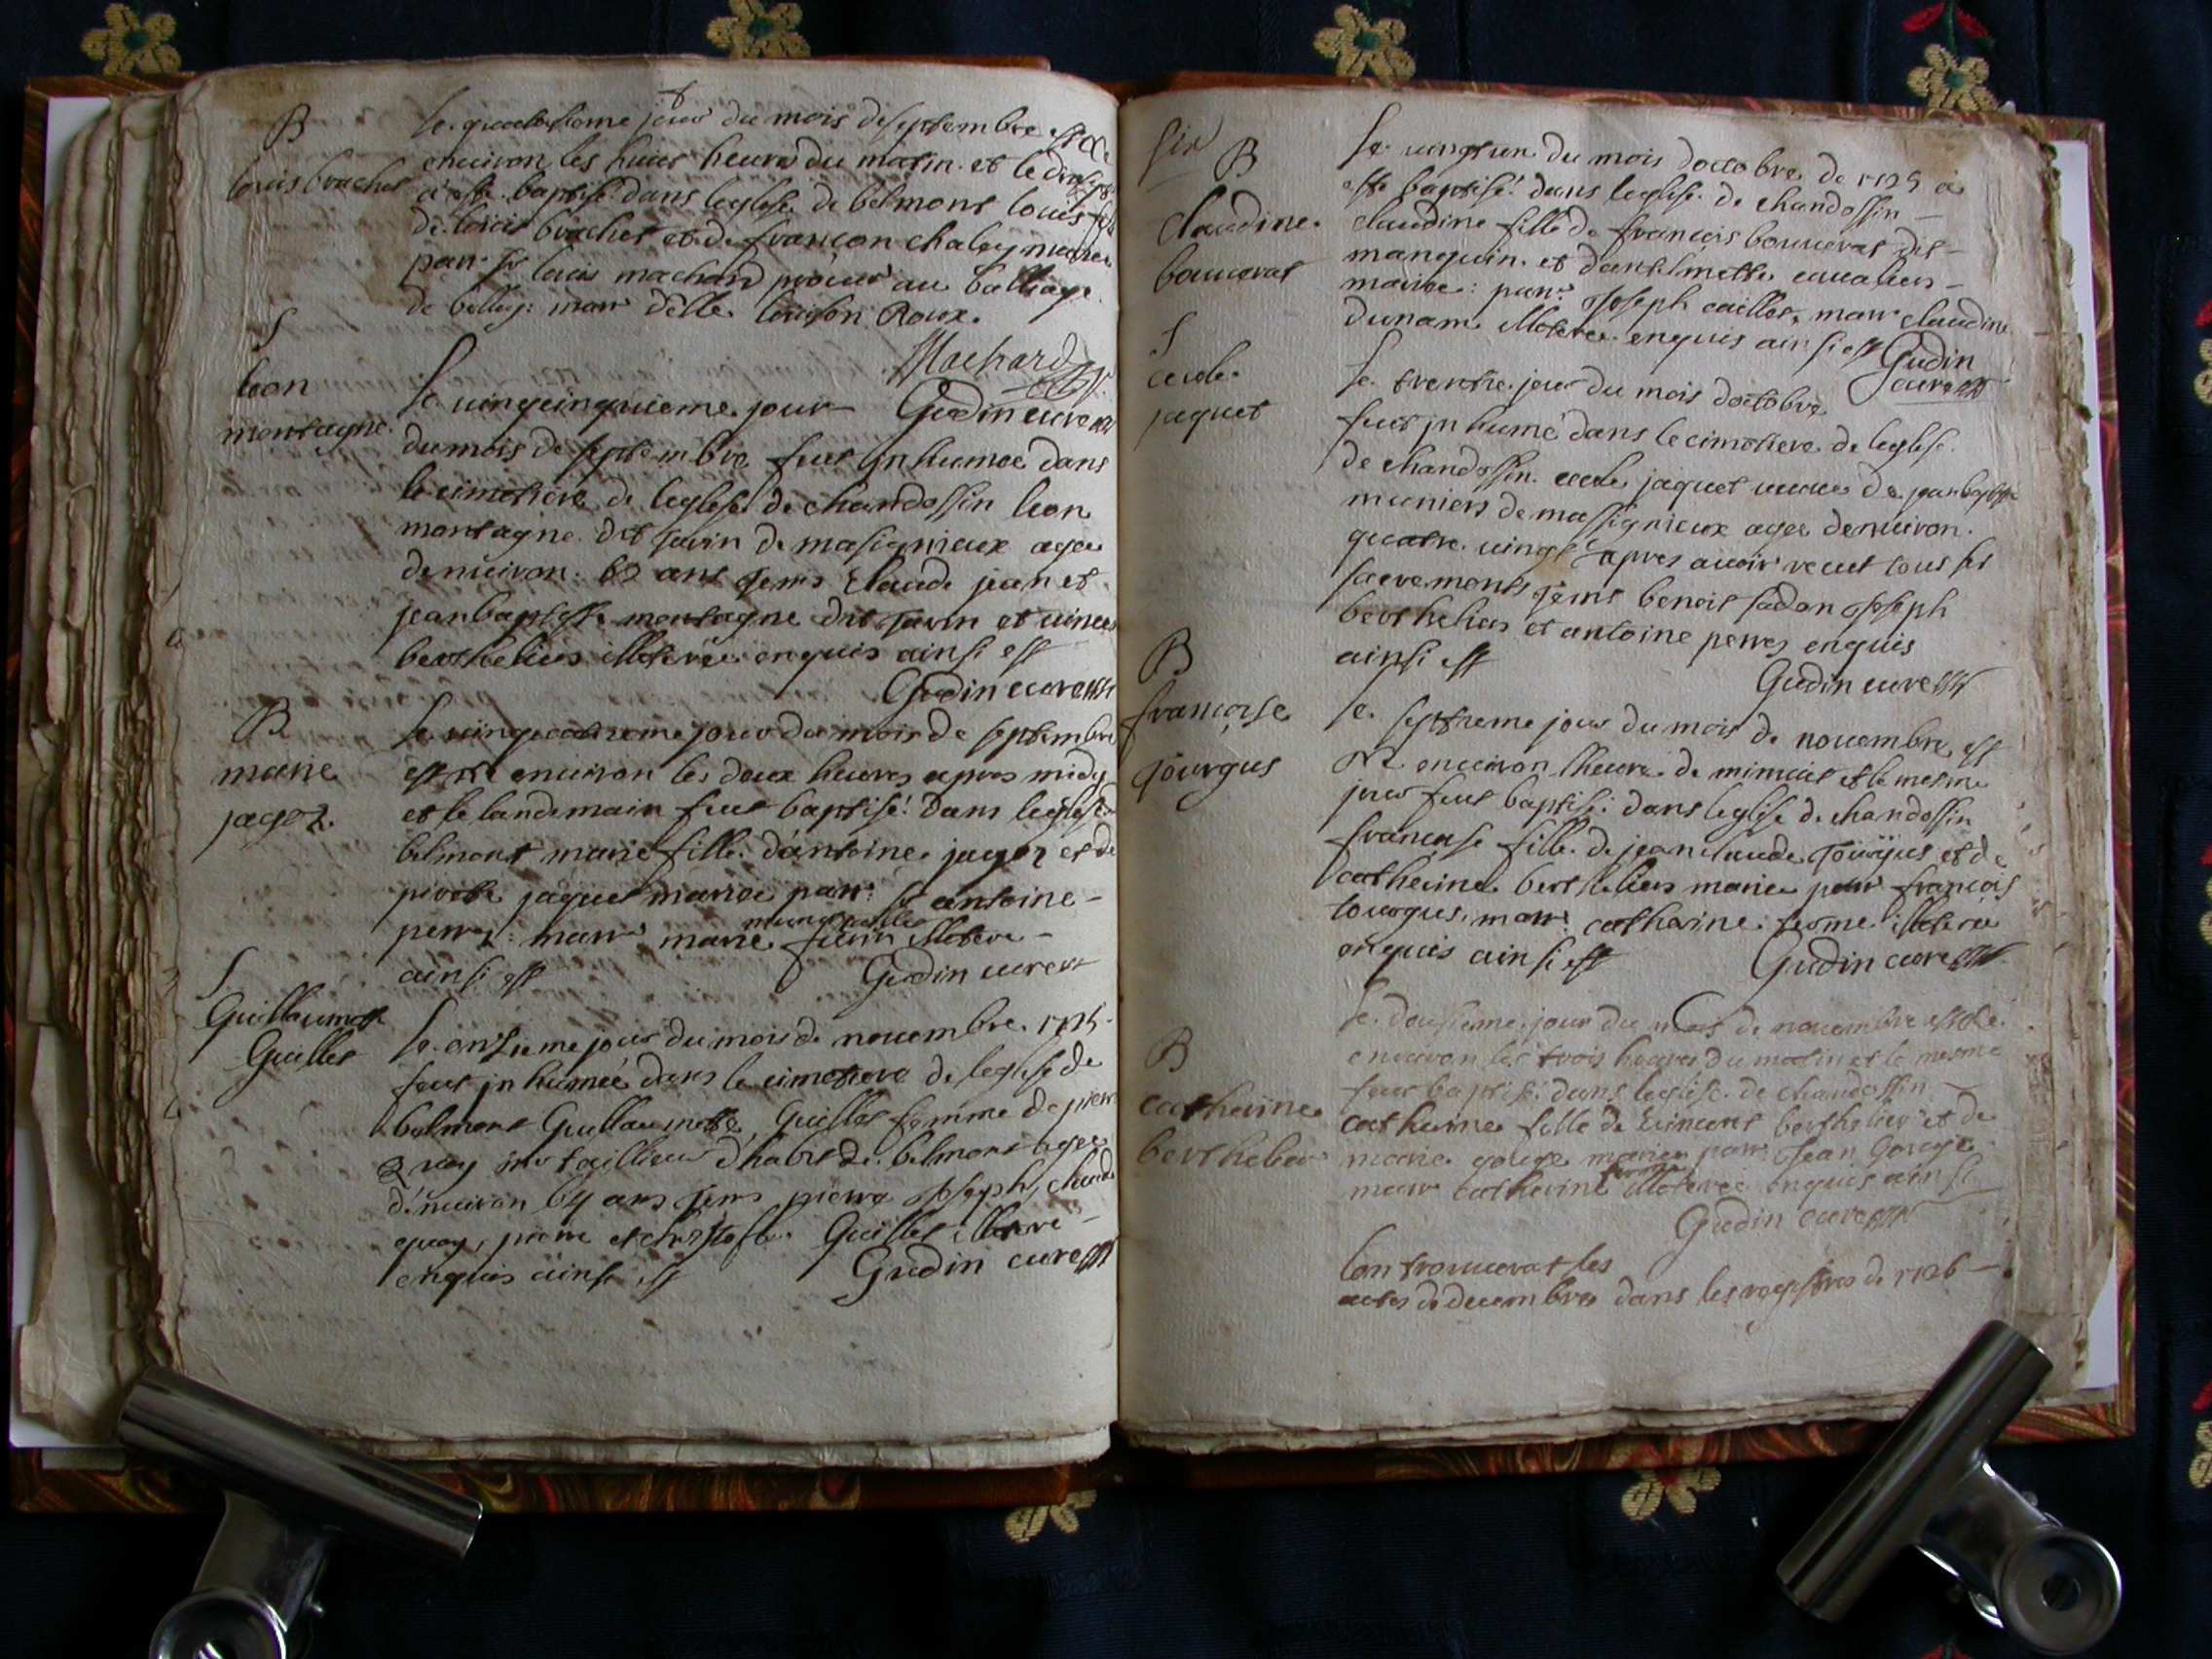 B
louis brachet
le quatorsieme jour du mois de septembre est né
environ les huict heures du matin et le dix sept
a esté baptisé dans leglise de belmont louis fils
de louis brachet et de françon chaley mariés
parr sr louis machard procur au balliage
de belley: marr delle louison Roux.
Machard
S
leon
montagne
le vingcinquieme jour Gudin curé
du mois de septembre fut jnhumée dans
le cimetiere de leglise de chandossin leon
montagne dit savin de masignieux agée
denviron 60 ans tems Claude jean et
jean baptiste montagne dit savin et vincent
berthelier illeterée enquis ainsi est
Gudin curé
B
marie
jagoz
le vingcatrieme jour du mois de septembre
est née environ les deux heures apres midy
et le landemain fut baptisé dans leglise de
belmont marie fille d'antoine jagoz et de
pierotte jaquet mariée parr sr antoine
perrez: marr marie illetere
ainsi est Gudin curé
S
Guillaumette
Guillet
le onsieme jour du mois de novembre 1725
fut jnhumée dans le cimetiere de leglise de
belmont Guillaumette Guillet femme de pierre
quey mr taillieur dhabit de belmont agée
d'environ 64 ans tems pierre joseph, claude
quey, pierre et christofle Guillet illetere
enquis ainsi est Gudin curé
B
claudine
bouverat
le vingt un du mois doctobre de 1725 a
esté baptisé dans leglise de chandossin
claudine fille de françois bouverat dit
manquin et dantelmette cavalier
mariée: parr joseph caillet, marr claudine
dunam illeterée enquis ainsi est Gudin
curé
S
jaquet
le trentie jour du mois doctobre
fut jnhumé dans le cimetiere de leglise
de chandossin jaquet veuve de jean baptiste
muniers de massignieux agée denviron
quatre vingt apres avoir receut tous ses
sacrements tems benoit sadon joseph
berthelier et antoine perrez enquis
ainsi est
Gudin curé
B
françoise
Tourgus
le septieme jour du mois de novembre est
né environ lheure de minuict et le mesme
jour fut baptisé dans leglise de chandossin
françoise fille de jean claude Tourgus et de
catherine berthelier mariés parr françois
tourgus, marr catherine ferme illeterée
enquis ainsi est Gudin curé
B
catherine
berthelier
le dousieme jour du mois de novembre est né
environ les trois heures du matin et le mesme
jour baptisé dans leglise de chandossin
catherine fille de vincent berthelier et de
marie gouge mariés parr jean Gouge
marr catherine ferme illeterée enquis ainsi
Gudin curé
lon trouverat les
actes de decembre dans les registres de 1726